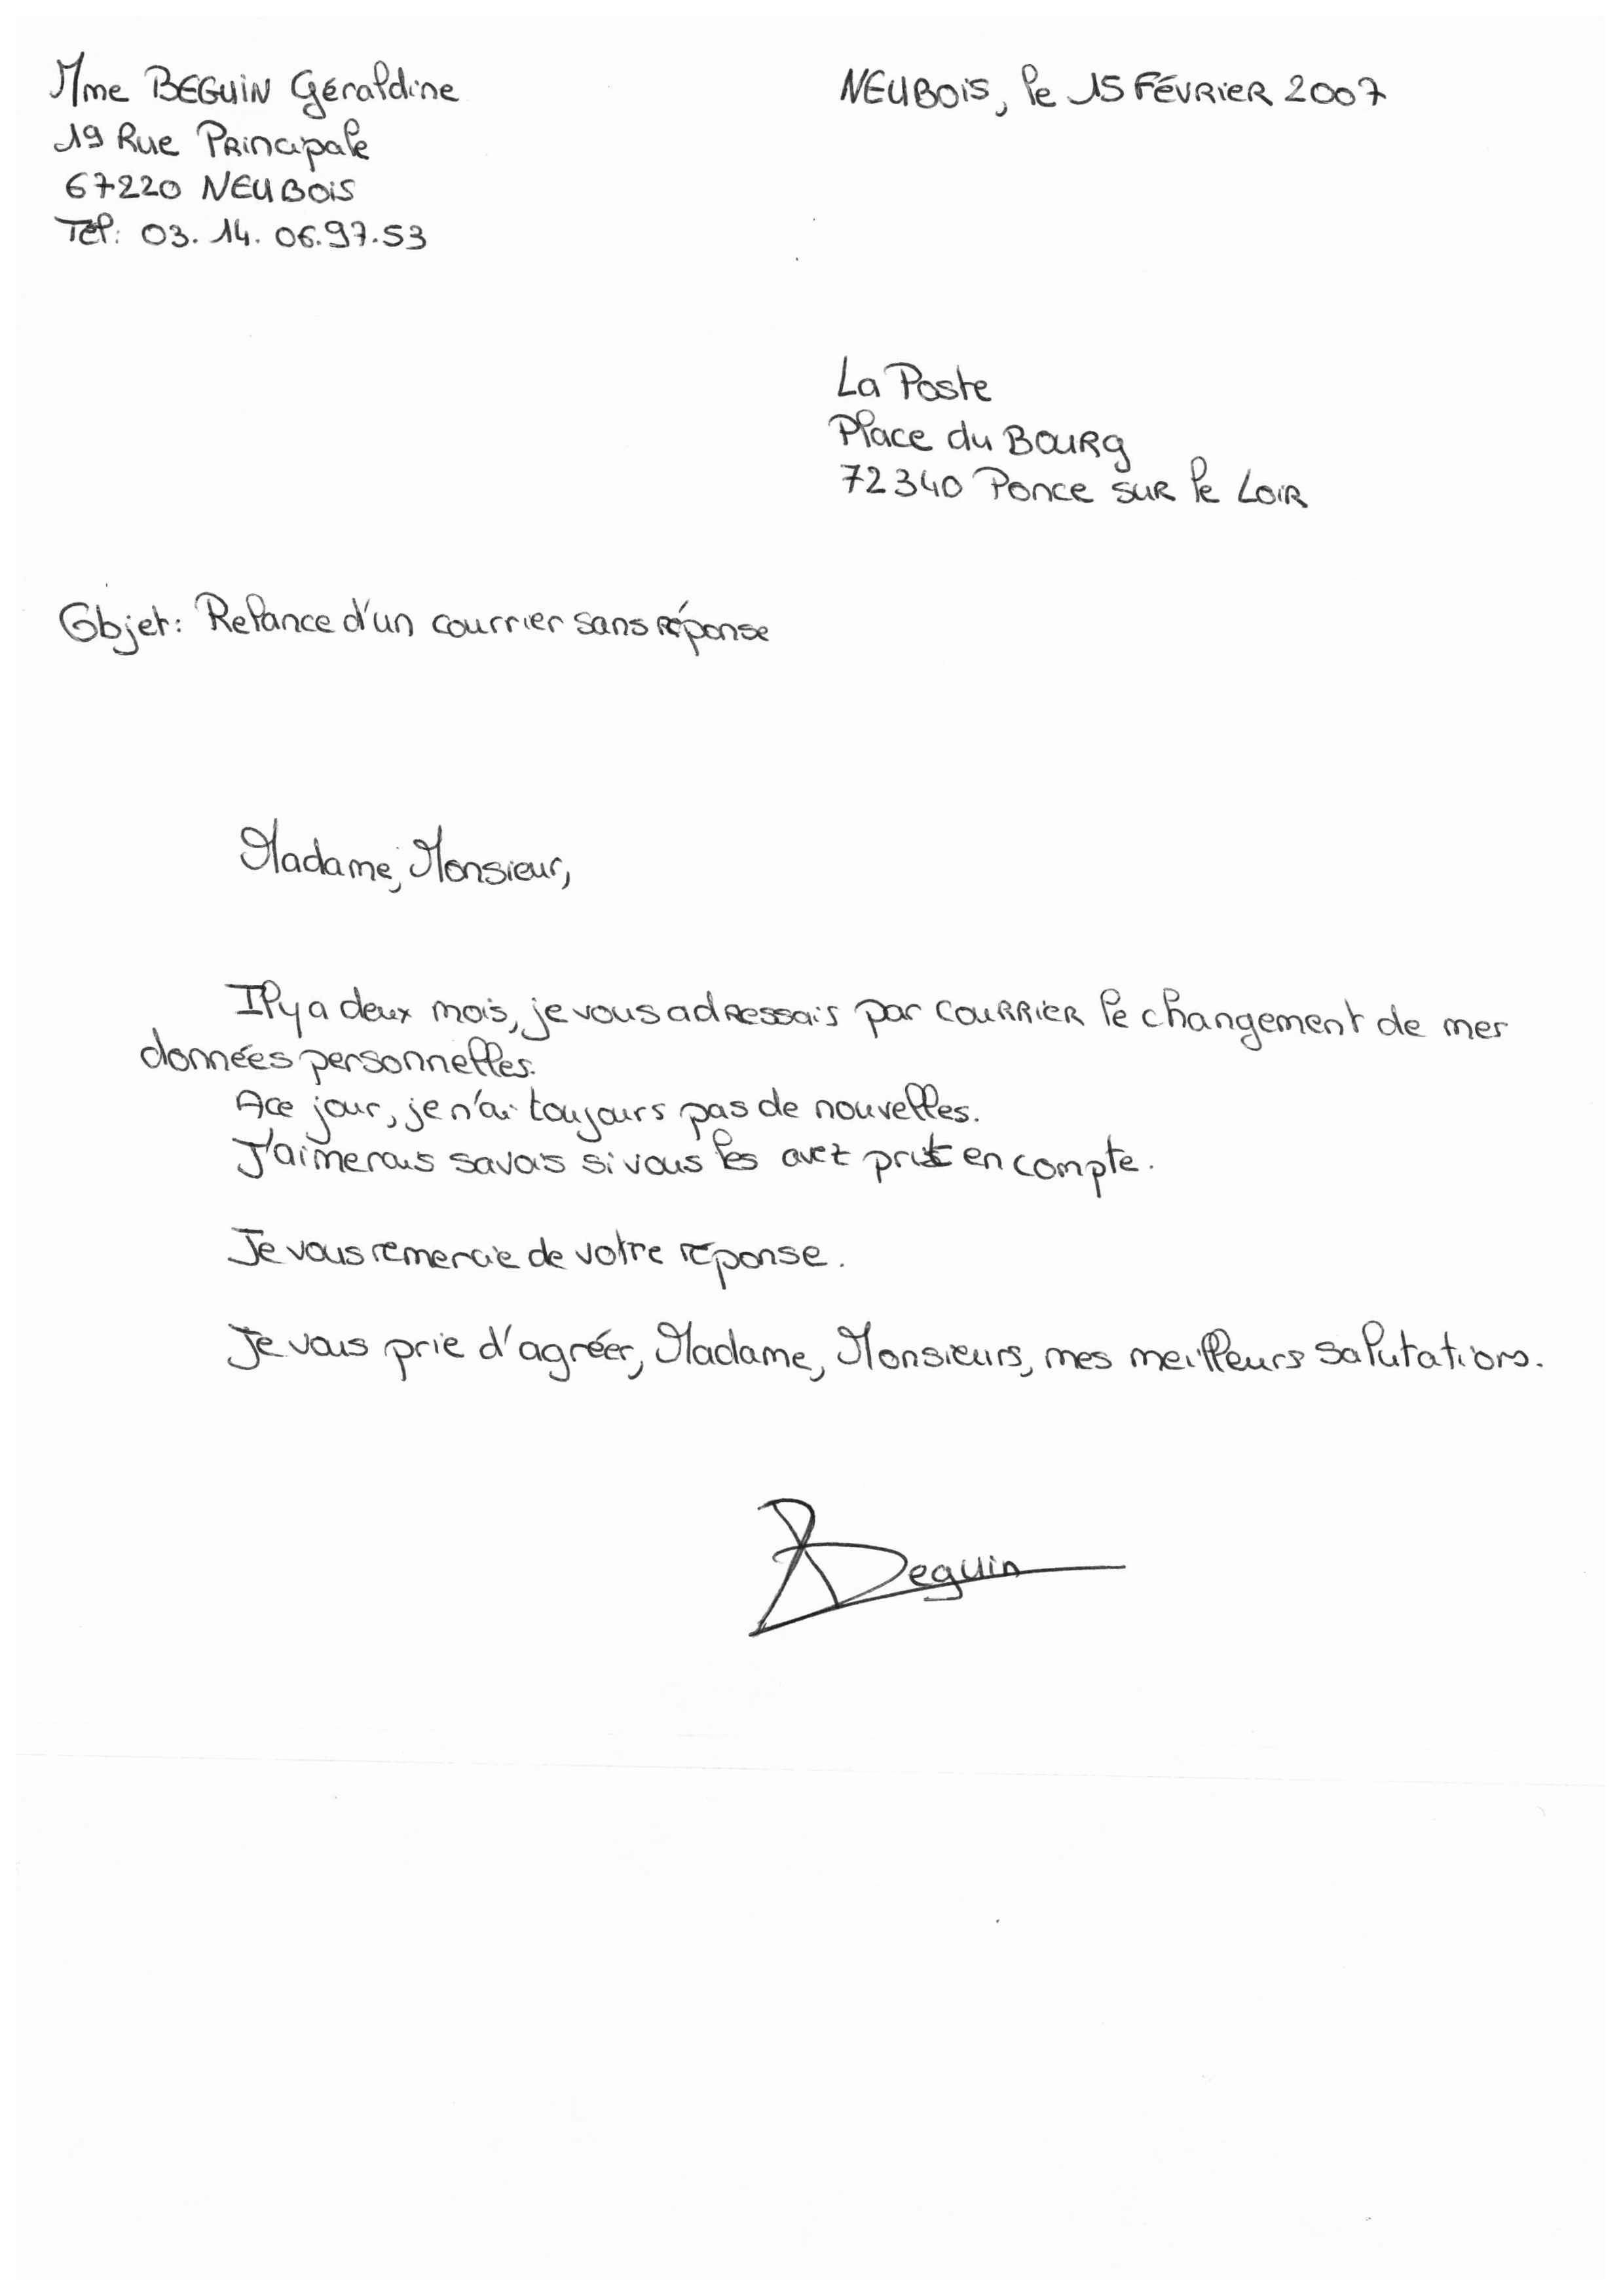 Mme BEGUIN Géraldine
NEUBOIS, le 15 FÉVRIER 2007
19 Rue Principale
67220 NEUBOIS
Tél: 03. 14. 06.97.53
La Poste
Place du Bourg
72340 Ponce sur le Loir
Objet: Relance d'un courrier sans réponse
Madame, Monsieur,
Il y a deux mois, je vous adressais par courrier le changement de mes
données personnelles.
A ce jour, je n'ai toujours pas de nouvelles.
J'aimerais savois si vous les avez pris en compte.
Je vous remercie de votre réponse.
Je vous prie d'agréer, Madame, Monsieurs, mes meilleurs salutations.
Beguin